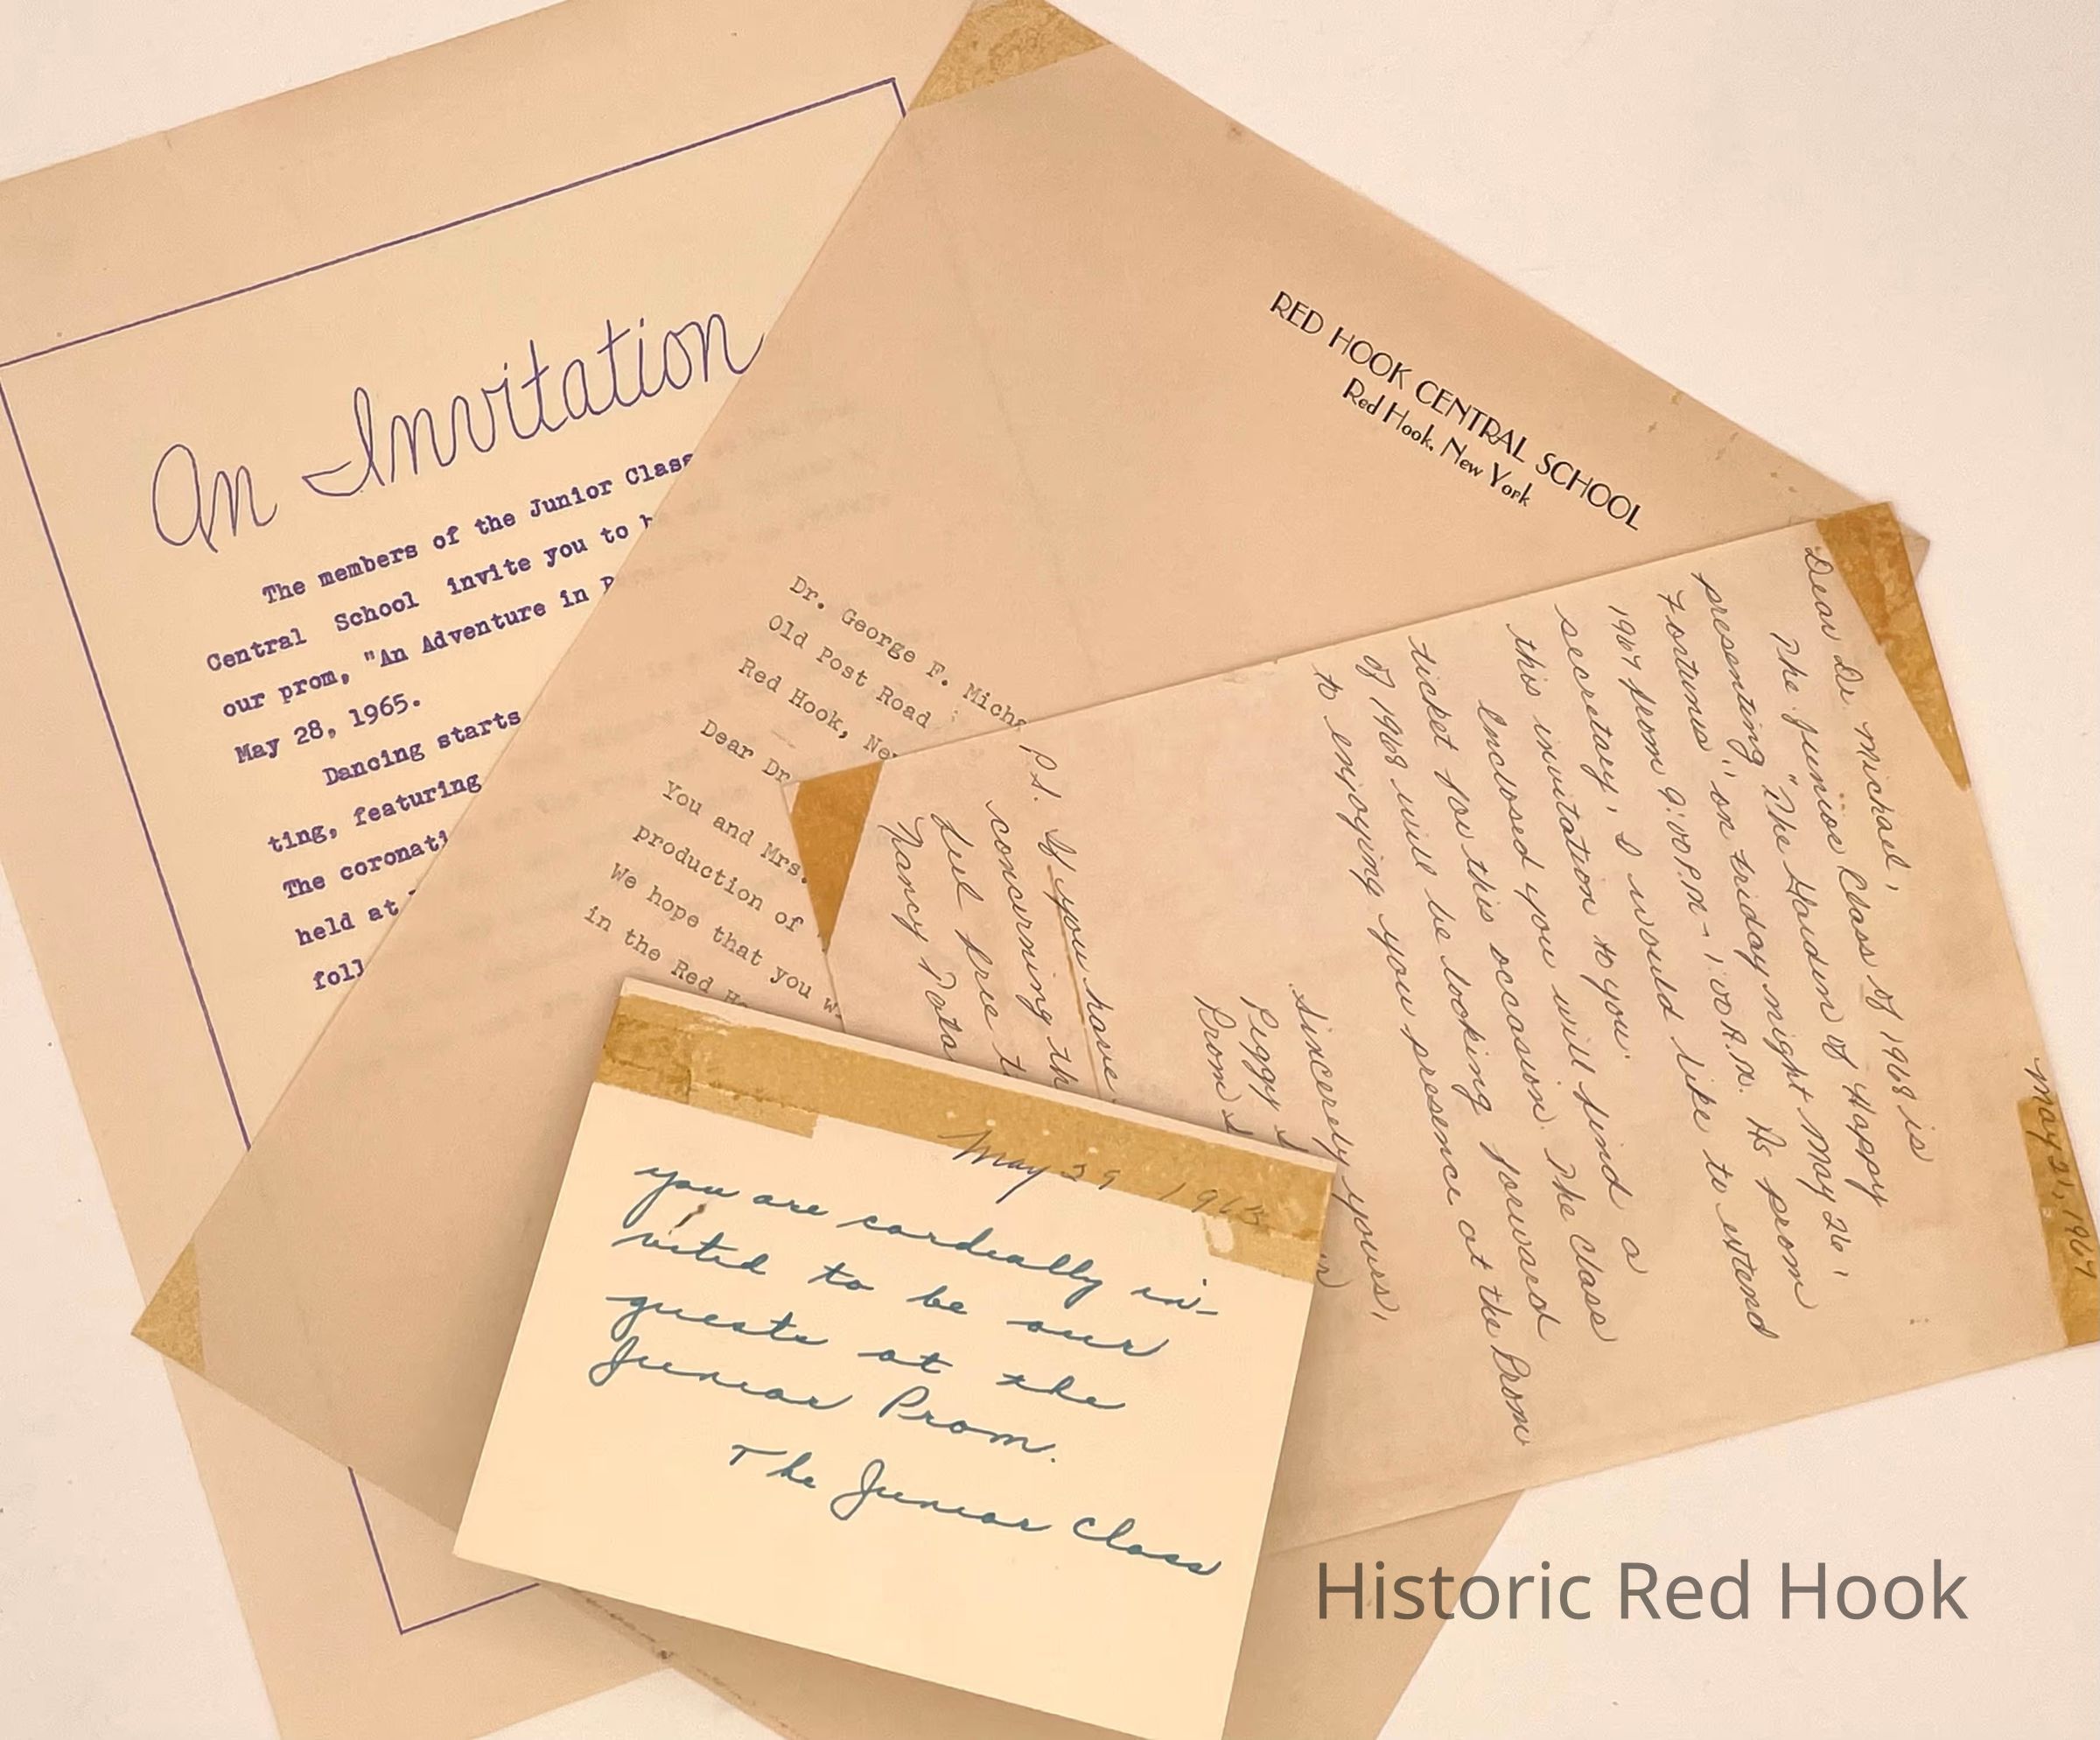 An Invitation
The members of the Junior Class
Central School invite you to
our prom, "An Adventure in
May 28, 1965.
Dancing starts
ting, featuring
The coronati
held at
foll
RED HOOK CENTRAL SCHOOL
Red Hook, New York
Dr. George F. Micha
Old Post Road
Red Hook, Ne
Dear Dr.
You and Mrs.
production of
We hope that you w
in the Red Ho
May 21, 1967
Dear Dr. Michael,
The Junior Class of 1968 is
presenting "The Garden of Happy
Fortunes" on Friday night May 26,
1967 from 9:00 P.M - 1:00 A.M. As prom
secretary, I would like to extend
this invitation to you.
Enclosed you will find a
ticket for this occasion. The class
of 1968 will be looking forward
to enjoying your presence at the Prom
Sincerely yours,
Peggy
Prom
P.S. If you have
concerning th
feel free t
Nancy
May 29 196
you are cordeally in-
vited to be our
guests at the
Junior Prom.
The Junior Class
Historic Red Hook